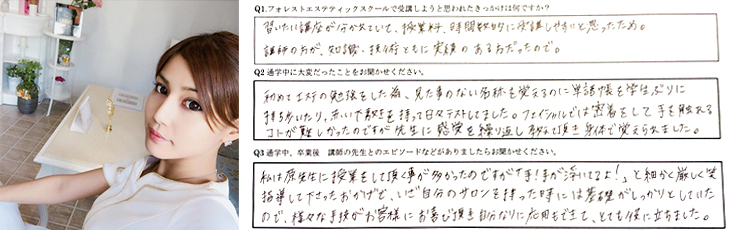 Q1.フォレストエステティックスクールで受講しようと思われたきっかけは何ですか？
習いたい講座が分かれていて、授業料、時間数的に受講しやすいと思ったため。
講師の方が、知識・技術ともに実績のある方だったので。
Q2 通学中に大変だったことをお聞かせください。
初めてエステの勉強をした為、見た事のない名称を覚えるのに単語帳を学生ぶりに
持ち歩いたり、赤い下敷きを持って日々テストしてました。フェイシャルでは密着をして手を触れる
コトが難しかったのですが先生に感覚を繰り返し教えて頂き身体で覚えられました。
Q3 通学中、卒業後 講師の先生とのエピソードなどがありましたらお聞かせください。
私は 先生に授業をして頂く事が多かったのですが「手！手が浮いてるよ！」と細かく厳しく
指導して下さったおかげで、いざ自分のサロンを持った時には基礎がしっかりとしていた
ので、様々な手技がお客様にお喜び頂き自分なりに応用もできて、とても役に立ちました。